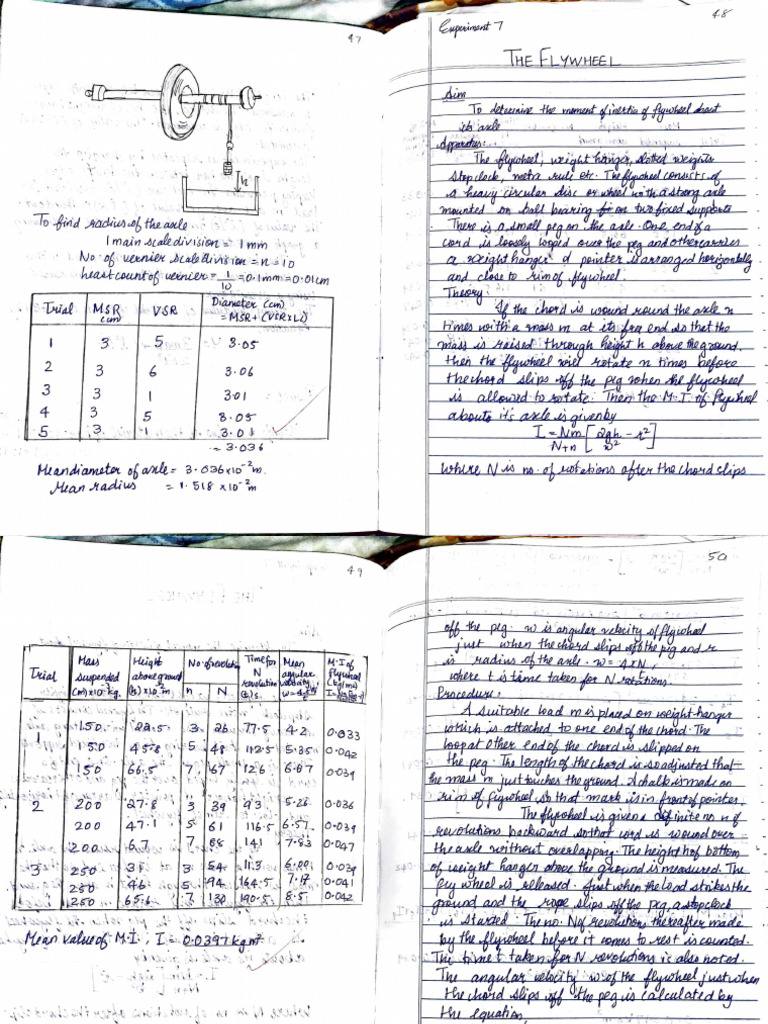 47
h
To find radius of the axle
1 main scale division = 1 mm
No. of vernier scale division = n = 10
least count of vernier = 1/10 = 0.1mm = 0.01cm
Trial MSR (cm) VSR Diameter (cm) = MSR + (VSR×LC)
1 3 5 3.05
2 3 6 3.06
3 3 1 3.01
4 3 5 3.05
5 3 1 3.01
= 3.036
Mean diameter of axle = 3.036×10⁻² m.
Mean radius = 1.518×10⁻² m
48
Experiment 7
THE FLYWHEEL
Aim
To determine the moment of inertia of flywheel about
its axle
Apparatus:-
The flywheel, weight hanger, slotted weights
stop clock, metre rule etc. The flywheel consists of
a heavy circular disc or wheel with a strong axle
mounted on ball bearing on two fixed supports
There is a small peg on the axle. One end of a
cord is loosely looped over the peg and other carries
a weight hanger. A pointer is arranged horizontally
and close to rim of flywheel.
Theory:
If the chord is wound round the axle n
times with a mass m at its free end so that the
mass is raised through height h above the ground.
then the flywheel will rotate n times before
the chord slips off the peg when the flywheel
is allowed to rotate. Then the M.I. of flywheel
about its axle is given by
I = Nm/N+n [2gh/w² - r²]
where N is no. of rotations after the chord slips
49
Trial Mass suspended (m)×10⁻³ kg. Height above ground (h)×10⁻² m No. of revolution n N Time for N revolution (t) s. Mean angular velocity M.I of flywheel
1 150 22.5 3 26 77.5 4.2 0.033
150 45.8 5 48 112.5 5.35 0.042
150 66.5 7 67 126 6.67 0.039
2 200 27.8 3 39 93 5.26 0.036
200 47.1 5 61 116.5 6.57 0.039
200 6.7 7 88 141 7.83 0.047
3 250 31 3 54 113 6.001 0.039
250 46 5 94 164.5 7.17 0.041
250 65.6 7 130 190.5 8.5 0.042
Mean value of M.I, I = 0.0397 kgm²
50
off the peg. w is angular velocity of flywheel
just when the chord slips off the peg and r
is radius of the axle. w = 4πN/t,
where t is time taken for N rotations.
Procedure:
A suitable load m is placed on weight hanger
which is attached to one end of the chord. The
loop at other end of the chord is slipped on
the peg. The length of the chord is so adjusted that
the mass m just touches the ground. A chalk is made on
rim of flywheel so that mark is in front of pointer.
The flywheel is given a definite no n of
revolutions backward so that cord is wound over
the axle without overlapping. The height h of bottom
of weight hanger above the ground is measured. The
fly wheel is released. Just when the load strikes the
ground and the rope slips off the peg, a stopclock
is started. The no. N of revolution thereafter made
by the flywheel before it comes to rest is counted.
The time t taken for N revolutions is also noted.
The angular velocity w of the flywheel just when
the chord slips off the peg is calculated by
the equation,